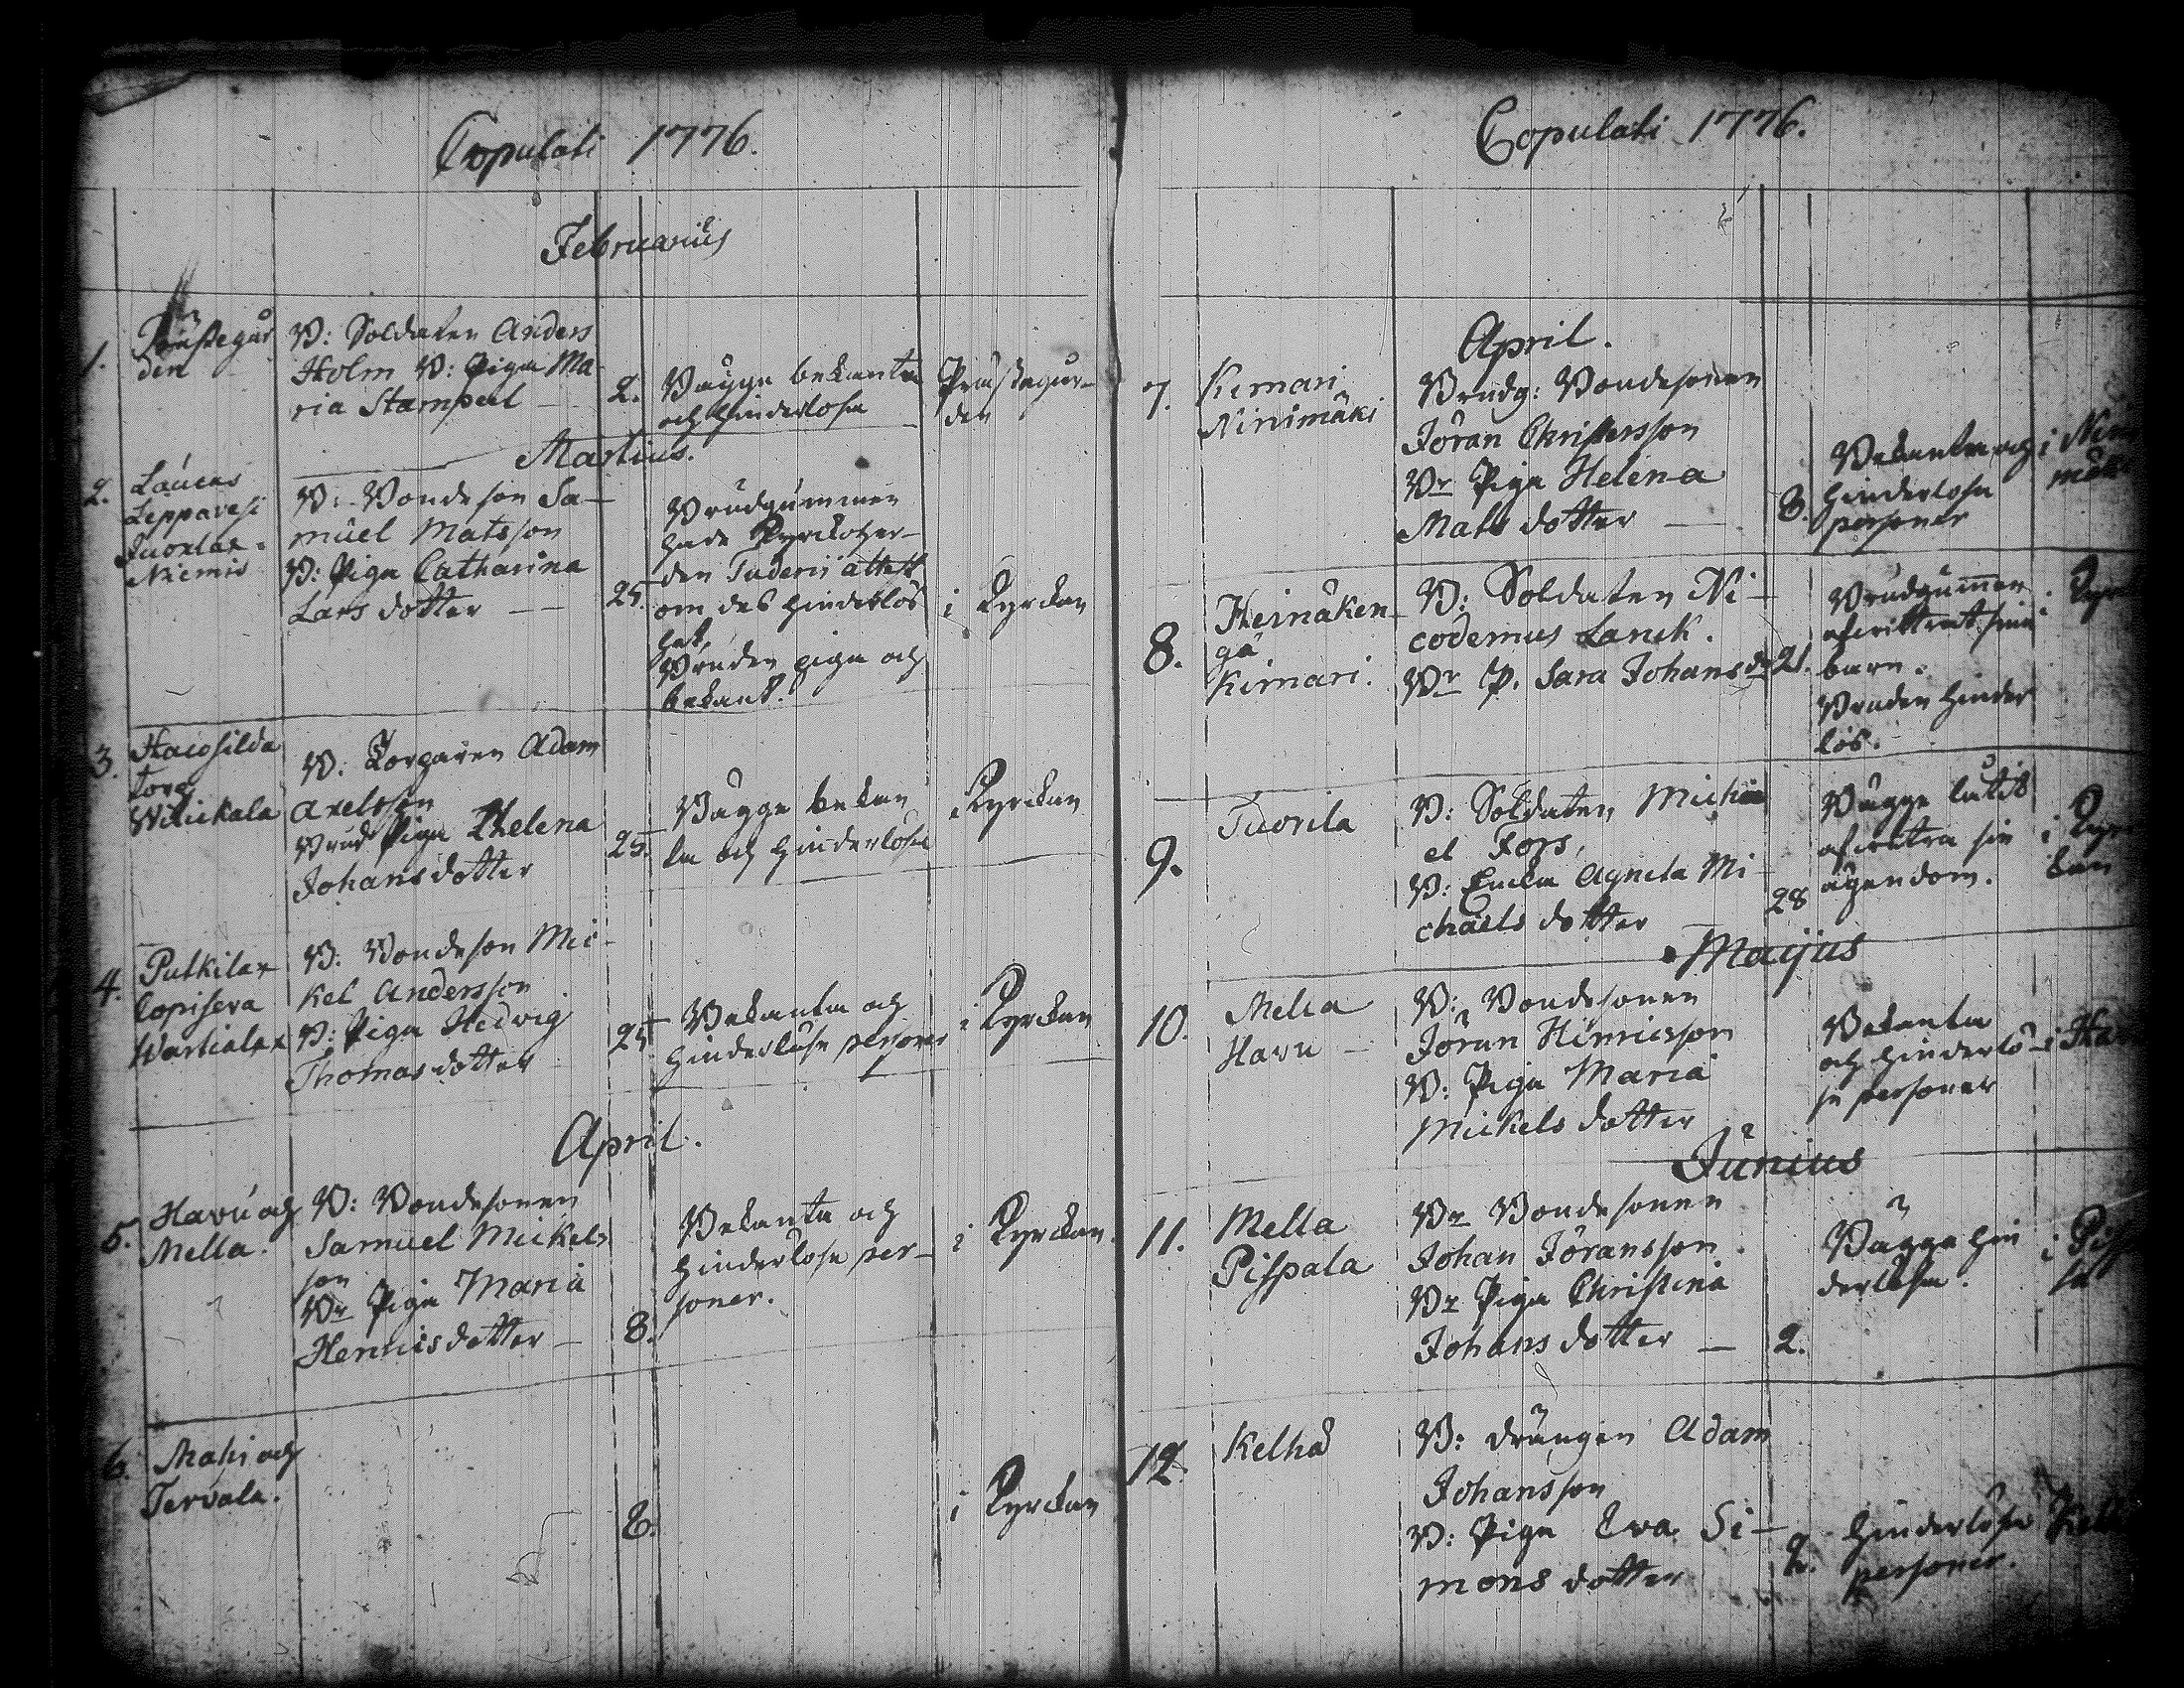 Copulati 1776.
Februarius
1. Prustegår
den
B: Soldaten Anders
Holm B: Pigan Ma
ria Stamperl —
2.
Bägge bekanta
och hinderlösa
Prustegår-
den
Martius.
2. Laucas
Leppavesi
Niemis
B: Bondeson Sa-
muel Matsson
B: Pigan Catharina
Lars dotter — —
25.
Brudgummen
hade Kyrckoher-
den Tuderii attest
om des hinderlös
het,
Bruden piga och
bekant.
i Kyrckan
3.
torp
Wilickala
B: Torparen Adam
Axelsson
Brud Pigan Helena
Johans dotter
25.
Bägge bekan
ta och hinderlösa
Kyrckan
4. Putkilax
Wartialax
B: Bondeson Mic-
kel Andersson
B: Pigan Hedvig
Thomas dotter
25
Bekanta och
hinderlösa personer
i Kyrckan
April.
5. Havu och
Mella.
B: Bondesonen
Samuel Mickels
son
Br Pigan Maria
Henricsdotter —
8.
Bekanta och
hinderlösa per-
soner.
i Kyrckan.
6. Mahi och
Tervala.
8.
i Kyrckan
Copulati 1776.
April.
7. Kimari
Ninimäki
Brudg: Bondesonen
Jöran Christersson
Br Pigan Helena
Mats dotter —
8.
Bekanta och
hinderlösa
personer
i Nini
mäki
8. Heinäken
gä
Kimari.
B: Soldaten Ni-
codemus Lanck.
Br P. Sara Johans dr
21.
Brudgummen
afvittrat sina
barn.
Bruden hinder
lös.
i Kyrc
9. Tuorila
B: Soldaten Micha
el Fors,
B: Enkan Agneta Mi-
chaels dotter —
28
Bägge låtit
afvittra sin
ägendom.
i Kyrc
kan
Majus
10. Mella
Havu —
B: Bondesonen
Jöran Hinricsson
B: Pigan Maria
Mickels dotter
Bekanta
och hinderlö-
sa personer
i Hav
Junius
11. Mella
Pispala
Br Bondesonen
Johan Jöransson.
Br Pigan Christina
Johans dotter —
2.
Bägge hin
derlösa.
i Pis
12. Kelhä
B: drängen Adam
Johansson
B: Pigan Eva Si-
mons dotter
2.
hinderlösa
personer.
Kelh